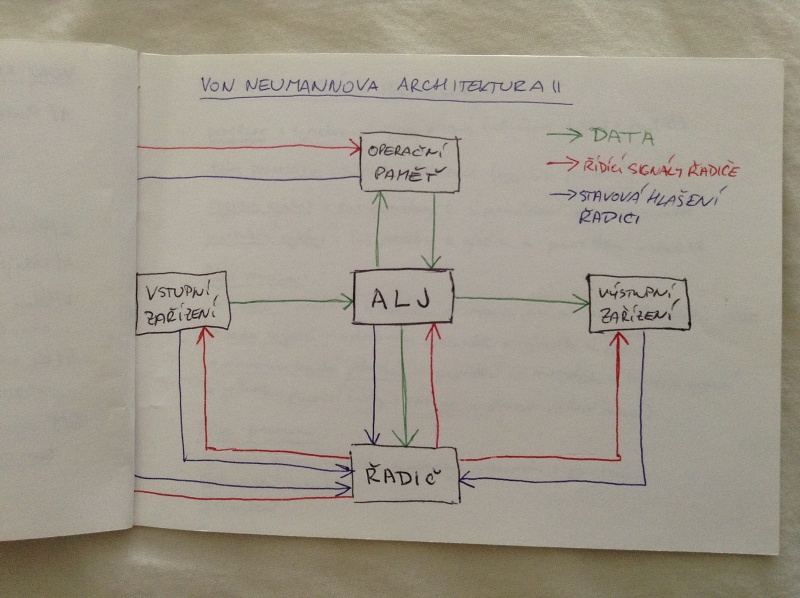 VON NEUMANNOVA ARCHITEKTURA II
DATA
ŘÍDÍCÍ SIGNÁLY ŘADIČE
STAVOVÁ HLAŠENÍ
ŘADIČI
OPERAČNÍ
PAMĚŤ
VSTUPNÍ
ZAŘÍZENÍ
ALJ
VÝSTUPNÍ
ZAŘÍZENÍ
ŘADIČ